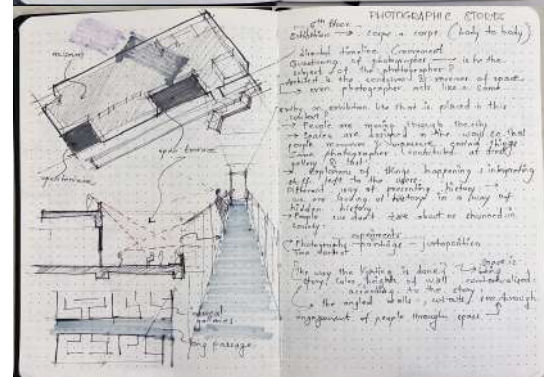 museum
open terrace
open terrace
museum galleries
long passage
PHOTOGRAPHIC STORIES
6th floor
exhibition → corps à corps (body to body)
directed timeline (movement
Questioning of photographer → is he the
subject of the photographer?
Architect is the assigned measurer of space
even photographer acts like a same
entry an exhibition like that is placed in this
context?
→ People are moving through
→ Spaces are designed in the ways so that
people manuever & measure certain things
same photographer (contributed at first
gallery & last)
→ Explanions of things happening & interpreting
stuff left to the users.
Different way of presenting history
we are looking at history in a way of
hidden history
→ People we don't talk about or shunned in
society.
experiments
Photography - paintings - juxtaposition
Time context
The way the lighting is done,
story, color, heights of wall contextualised
according to the story
→ the angled walls, see through
engagement of people through space
space is
being